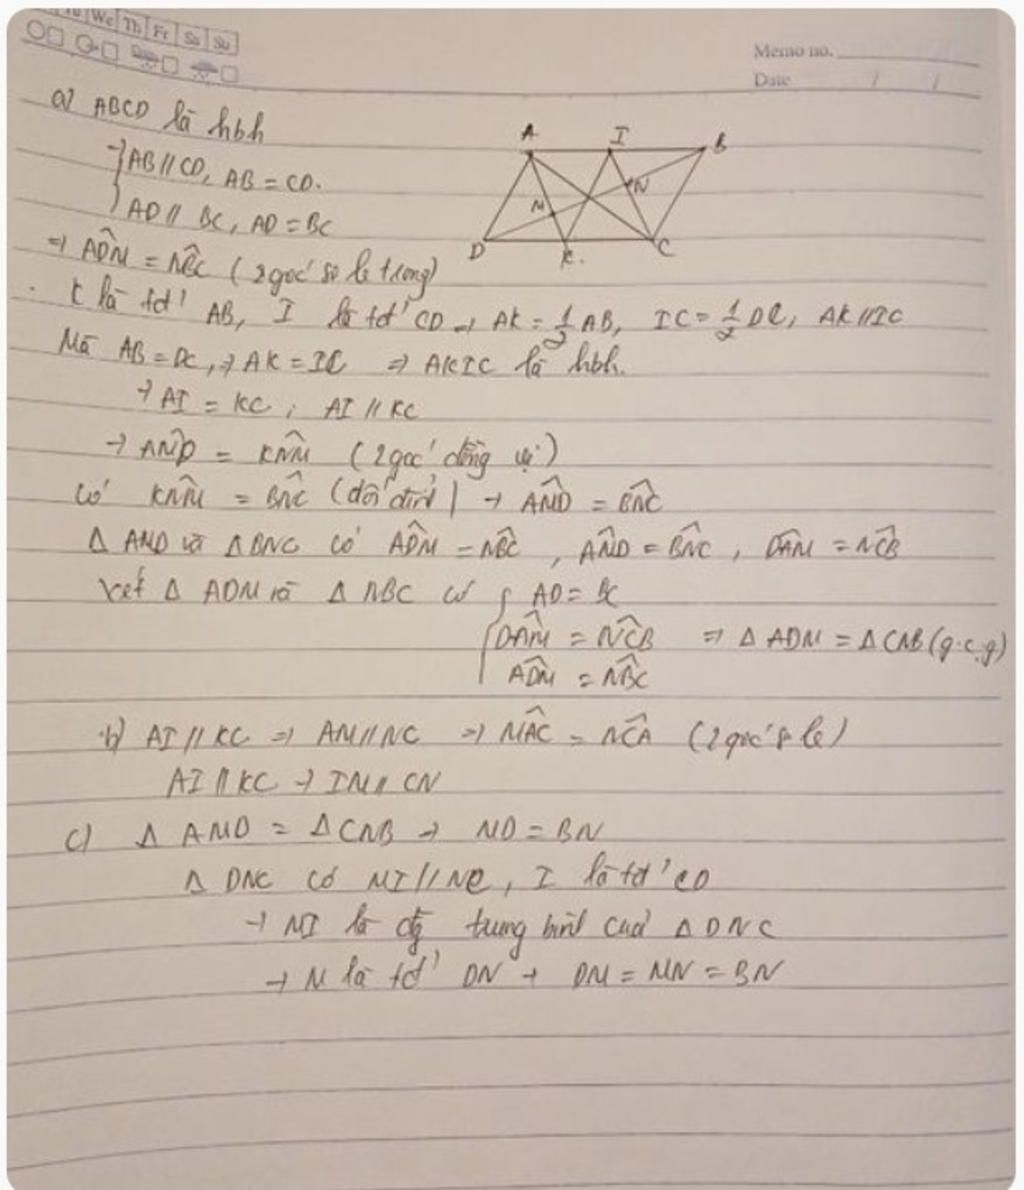 We Th Fr Sa Su
Memo no.
Date / /
a) ABCD là hbh
A I B
AB // CD, AB = CD.
N
AD // BC, AD = BC
M
D K. C
⇒ ADM̂ = NBĈ (2 góc so le trong)
K là tđ' AB, I là tđ' CD → AK = 1/2 AB, IC = 1/2 DC, AK // IC
Mà AB = DC, → AK = IC ⇒ AKIC là hbh.
→ AI = KC ; AI // KC
→ AND̂ = KNM̂ (2 góc đồng vị)
Có KNM̂ = BNĈ (đối đỉnh) → AMD̂ = BNĈ
Δ AMD và Δ BNC có ADM̂ = NBĈ , AMD̂ = BNĈ , DAM̂ = NCB̂
xét Δ ADM và Δ NBC có { AD = BC
DAM̂ = NCB̂ ⇒ Δ ADM = Δ CNB (g.c.g)
ADM̂ = NBĈ
b) AI // KC ⇒ AM // NC ⇒ MAĈ = NCÂ (2 góc so le)
AI // KC → IM // CN
c) Δ AMD = Δ CNB → MD = BN
Δ DNC có MI // NC, I là tđ' CD
→ MI là đg trung bình của Δ DNC
→ M là tđ' DN → DM = MN = BN